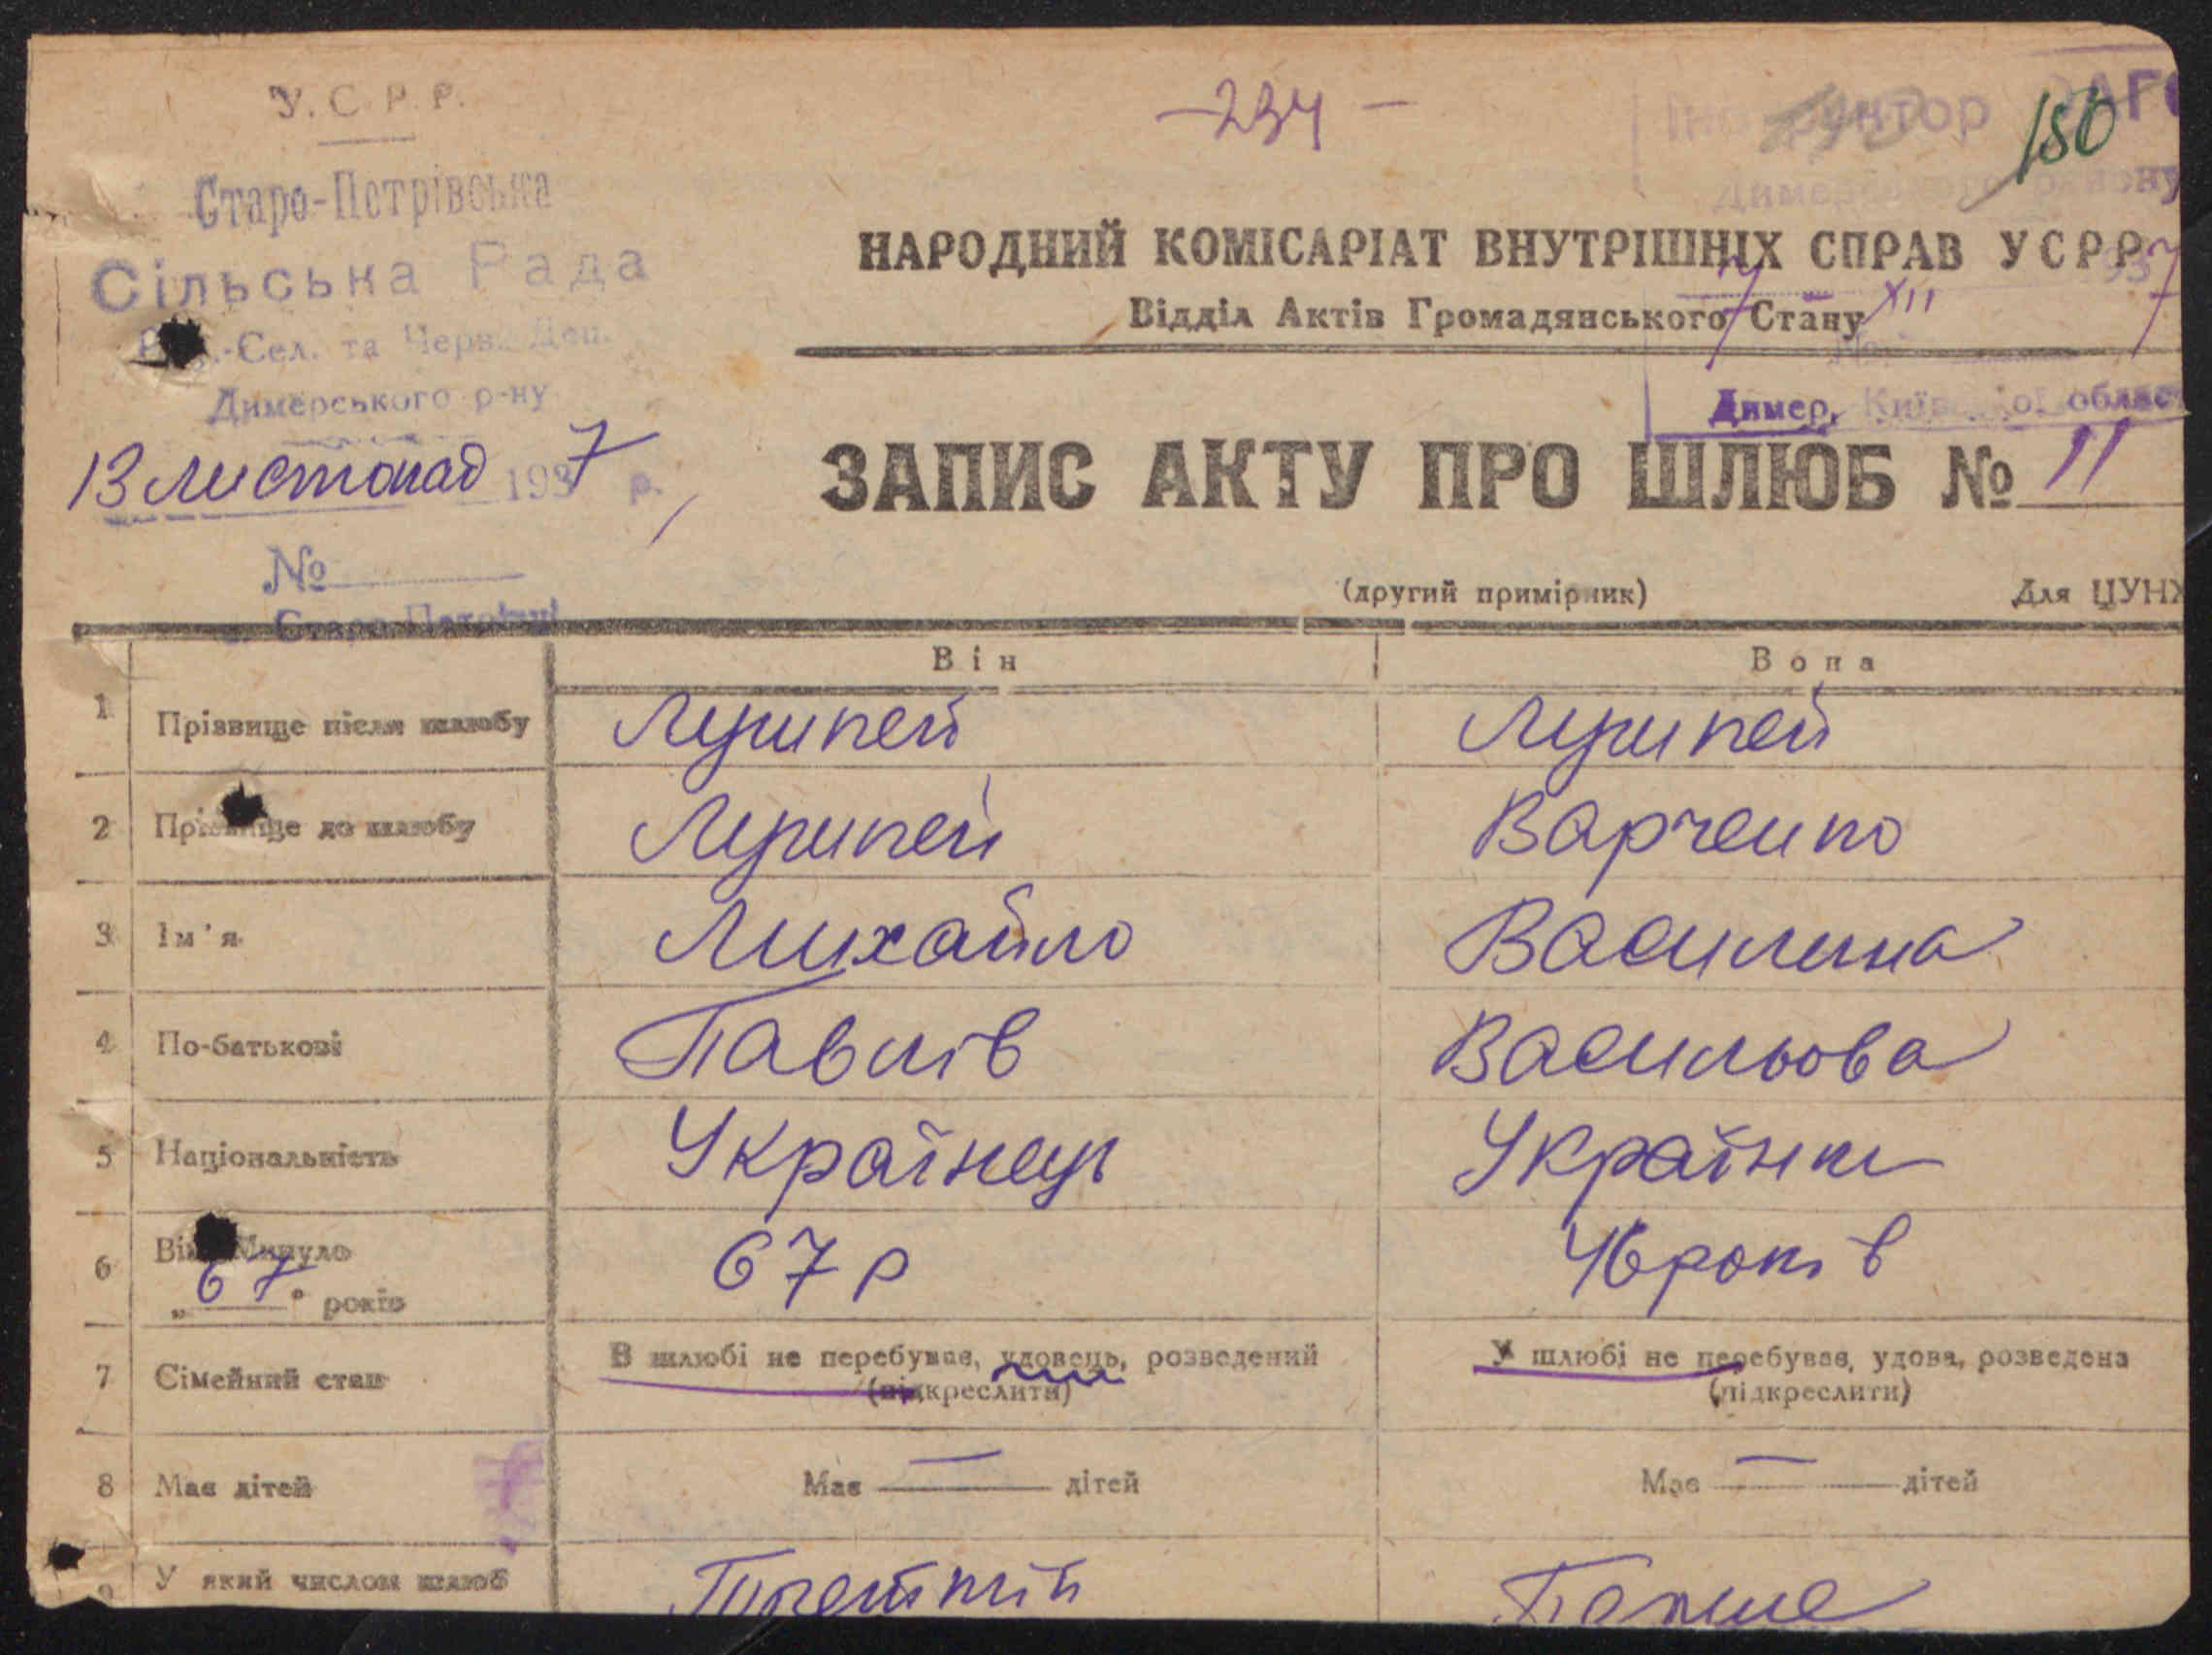 У.С.Р.Р.
Старо-Петрівська
Сільська Рада
-Сел. та Черв. Деп.
Димерського р-ну
13 листопад 1937 р.
№
Старо-Петрівці
-234-
150
Інспектор ЗАГС
Димерського району
7 XII 1937
№
Димер, Київської област
НАРОДНИЙ КОМІСАРІАТ ВНУТРІШНІХ СПРАВ УСРР
Відділ Актів Громадянського Стану
ЗАПИС АКТУ ПРО ШЛЮБ № 11
(другий примірник) Для ЦУНХ
Він Вона
1 Прізвище після шлюбу Лупипей Лупипей
2 Прізвище до шлюбу Лупипей Варченко
3 Ім'я Михайло Василина
4 По-батькові Павлів Васильова
5 Національність Українець Українка
6 Вік Минуло „67" років 67 р 46 років
7 Сімейний стан В шлюбі не перебував, удовець, розведений У шлюбі не перебував, удова, розведена
(підкреслити) (підкреслити)
8 Має дітей Має — дітей Має — дітей
9 У який числом шлюб Третій Перше